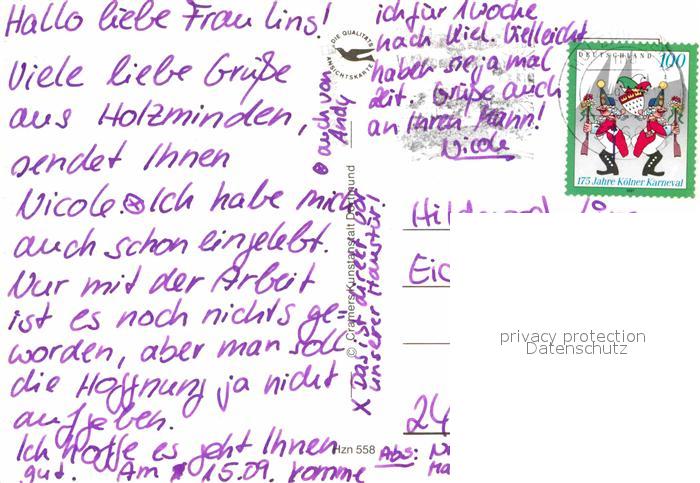 Hallo liebe Frau Lins!
Viele liebe Grüße
aus Holzminden,
sendet Ihnen
Nicole.⊗Ich habe mich
auch schon eingelebt.
Nur mit der Arbeit
ist es noch nichts ge-
worden, aber man soll
die Hoffnung ja nicht
aufgeben.
Ich hoffe es geht Ihnen
gut. Am 15.09. komme
ich für 1 Woche
nach Kiel. Vielleicht
haben sie ja mal
Zeit. Grüße auch
an Ihren Mann!
Nicole
⊗ auch von
Andy
X Das ist direkt vor
unserer Haustür!
DIE QUALITÄTS
ANSICHTSKARTE
© Cramers Kunstanstalt Dortmund
Hzn 558
DEUTSCHLAND 100
175 Jahre Kölner Karneval
Eic
24
Abs:
privacy protection
Datenschutz